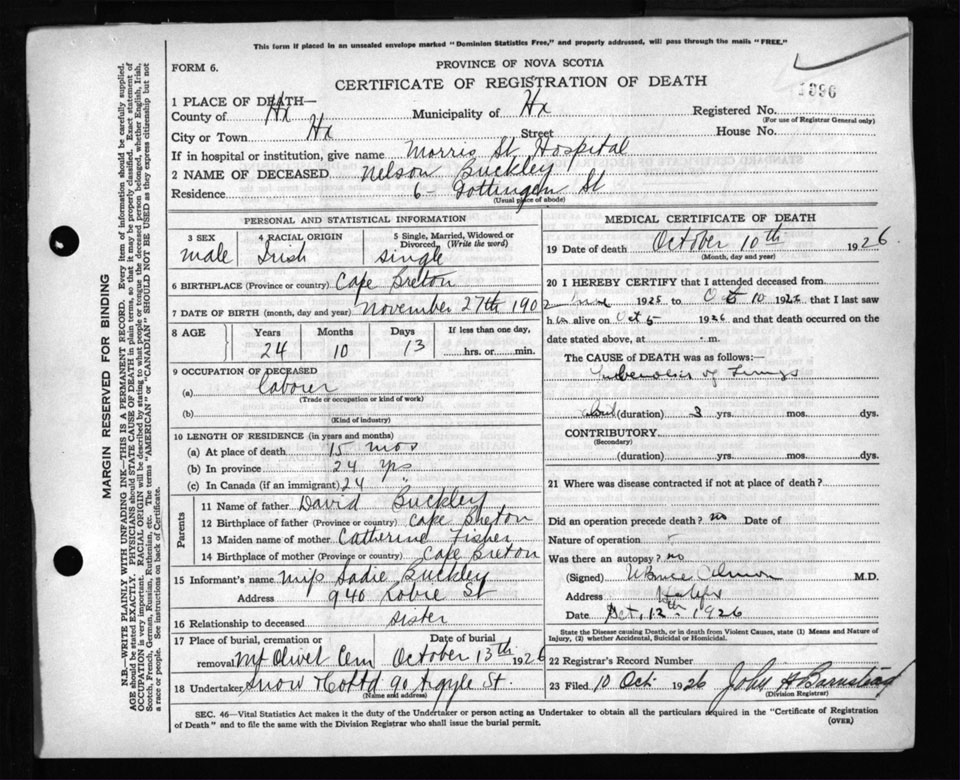 This form if placed in an unsealed envelope marked "Dominion Statistics Free," and properly addressed, will pass through the mails "FREE."
FORM 6.
PROVINCE OF NOVA SCOTIA
CERTIFICATE OF REGISTRATION OF DEATH
1896
1 PLACE OF DEATH—
County of Hx Municipality of Hx Registered No.
(For use of Registrar General only)
City or Town Hx Street House No.
If in hospital or institution, give name Morris St Hospital
2 NAME OF DECEASED Nelson Buckley
Residence 6- Gottingen St
(Usual place of abode)
PERSONAL AND STATISTICAL INFORMATION
3 SEX 4 RACIAL ORIGIN 5 Single, Married, Widowed or Divorced, (Write the word)
male Irish single
6 BIRTHPLACE (Province or country) Cape Breton
7 DATE OF BIRTH (month, day and year) November 27th 1902
8 AGE Years Months Days If less than one day,
24 10 13 hrs. or min.
9 OCCUPATION OF DECEASED
(a) laborer
(Trade or occupation or kind of work)
(b)
(Kind of industry)
10 LENGTH OF RESIDENCE (in years and months)
(a) At place of death 15 mos
(b) In province 24 yrs
(c) In Canada (if an immigrant) 24 "
Parents
11 Name of father David Buckley
12 Birthplace of father (Province or country) Cape Breton
13 Maiden name of mother Catherine Fisher
14 Birthplace of mother (Province or country) Cape Breton
15 Informant's name Miss Sadie Buckley
Address 940 Robie St
16 Relationship to deceased sister
17 Place of burial, cremation or removal Mt Olivet Cem Date of burial October 13th 1926
18 Undertaker Snow & Co Ltd 90 Argyle St.
(Name and address)
MEDICAL CERTIFICATE OF DEATH
19 Date of death October 10th 1926
(Month, day and year)
20 I HEREBY CERTIFY that I attended deceased from
June 1925 to Oct 10 1926 that I last saw
him alive on Oct 5 1926 and that death occurred on the
date stated above, at .m.
The CAUSE OF DEATH was as follows:—
Tuberculosis of Lungs
about (duration) 3 yrs. mos. dys.
CONTRIBUTORY
(Secondary)
(duration) yrs. mos. dys.
21 Where was disease contracted if not at place of death?
Did an operation precede death? no Date of
Nature of operation
Was there an autopsy? no
(Signed) M.D.
Address Halifax
Date Oct, 12th 1926
State the Disease causing Death, or in death from Violent Causes, state (1) Means and Nature of Injury, (2) whether Accidental, Suicidal or Homicidal.
22 Registrar's Record Number
23 Filed 10 Oct. 1926 John A Barnstead
(Division Registrar)
SEC. 46—Vital Statistics Act makes it the duty of the Undertaker or person acting as Undertaker to obtain all the particulars required in the "Certificate of Registration
of Death" and to file the same with the Division Registrar who shall issue the burial permit.
(OVER)
MARGIN RESERVED FOR BINDING
N.B.—WRITE PLAINLY WITH UNFADING INK—THIS IS A PERMANENT RECORD. Every item of information should be carefully supplied.
AGE should be stated EXACTLY. PHYSICIANS should STATE CAUSE OF DEATH in plain terms, so that it may be properly classified. Exact statement of
OCCUPATION is very important. RACIAL ORIGIN will be described by stating to what people or tongue the deceased person belonged, whether English, Irish,
Scotch, French, German, Russian, Ruthenian, etc. The terms "AMERICAN" or "CANADIAN" SHOULD NOT BE USED as they express citizenship but not
a race or people. See instructions on back of Certificate.